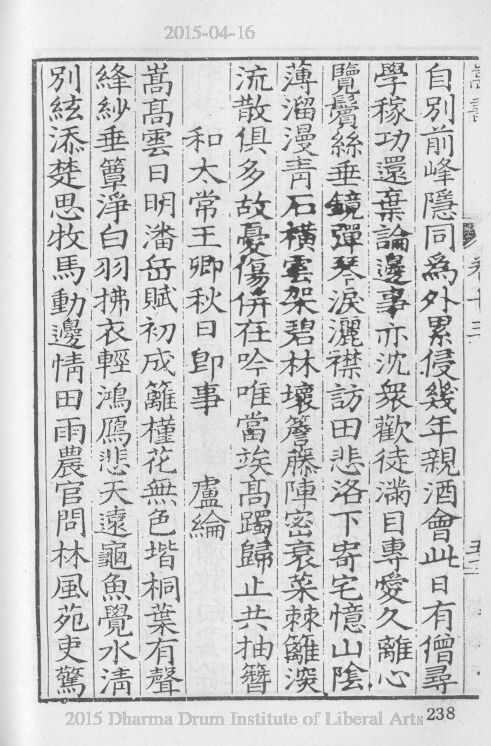 2015-04-16
自別前峰隱同為外累侵幾年親酒會此日有僧尋
學稼功還棄論邊事亦沈衆歡徒滿目專愛久離心
覽鬢絲垂鏡彈琴淚灑襟訪田悲洛下寄宅憶山陰
薄溜漫青石橫雲架碧林壞簷藤陣密衰菜棘籬深
流散俱多故憂傷併在吟唯當竢高躅歸止共抽簪
和太常王卿秋日卽事　盧綸
嵩高雲日明潘岳賦初成籬槿花無色堦桐葉有聲
絳紗垂簟淨白羽拂衣輕鴻鴈悲天遠龜魚覺水淸
別絃添楚思牧馬動邊情田雨農官問林風苑吏驚
2015 Dharma Drum Institute of Liberal Arts
238